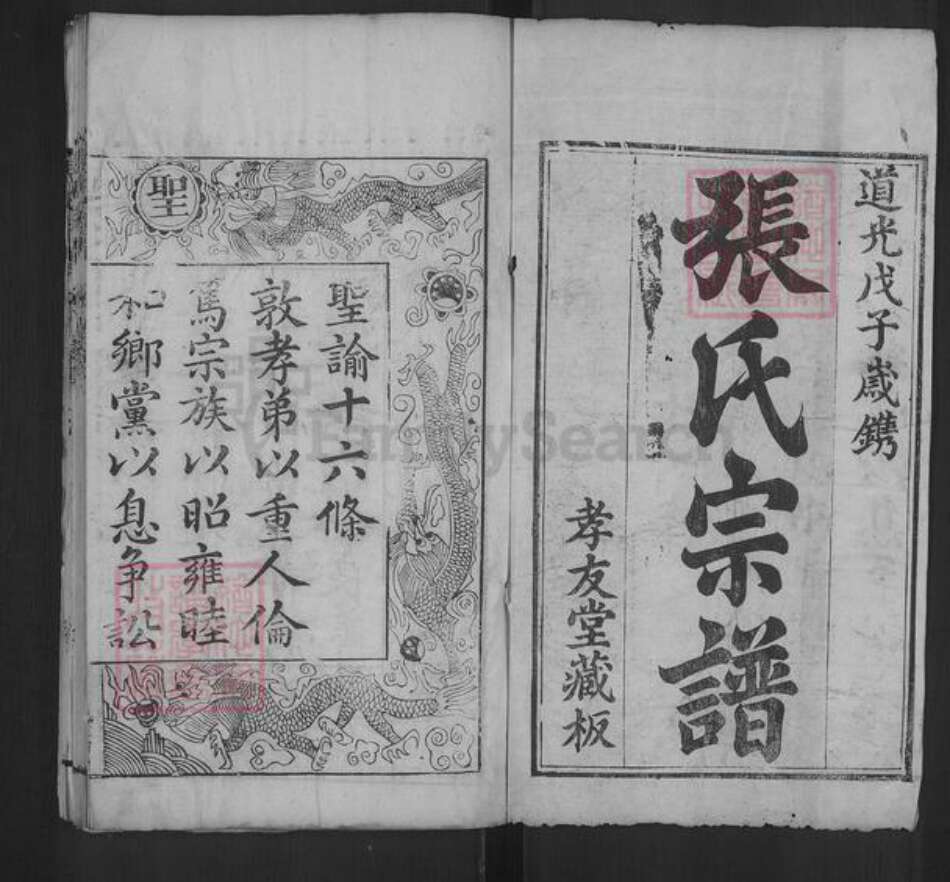 道光戊子歲鐫
張氏宗譜
孝友堂藏板
聖
聖諭十六條
敦孝弟以重人倫
篤宗族以昭雍睦
和鄉黨以息争訟
FamilySearch